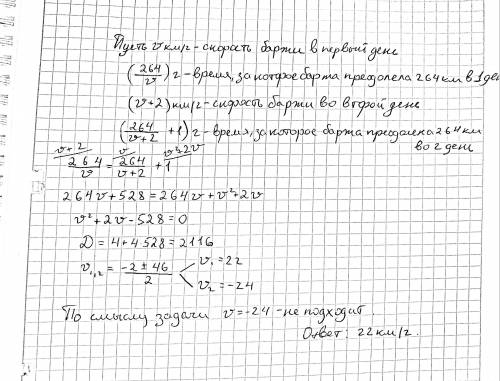 Пусть v км/г - скорость баржи в первый день
(264/v) г - время, за которое баржа преодолела 264 км в 1 день
(v+2) км/г - скорость баржи во второй день
(264/(v+2) + 1) г - время, за которое баржа преодолела 264 км
во 2 день
v+2 v v²+2v
264/v = 264/(v+2) + 1
264v + 528 = 264v + v² + 2v
v² + 2v - 528 = 0
D = 4 + 4·528 = 2116
v₁,₂ = (-2 ± 46)/2 v₁ = 22
v₂ = -24
По смыслу задачи v = -24 - не подходит.
Ответ: 22 км/г.